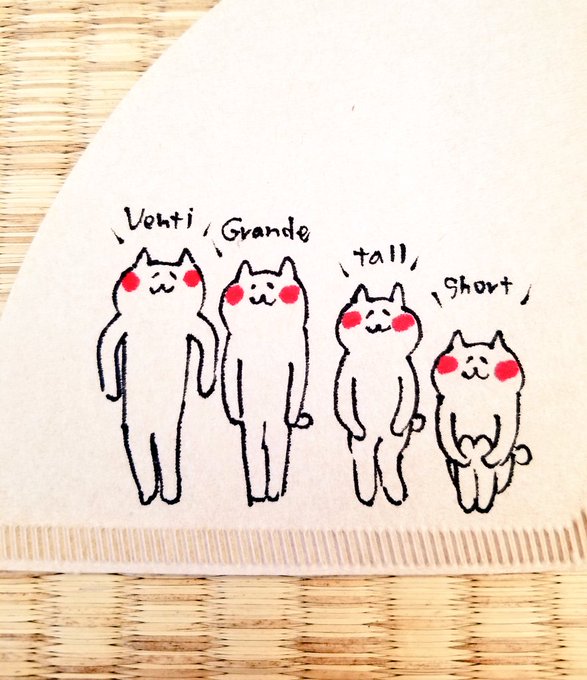 Venti
Grande
tall
short